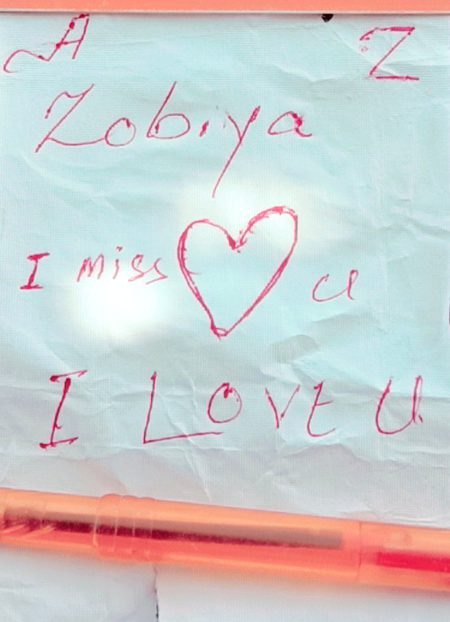 A Z
Zobiya
I miss u
I LOVE U